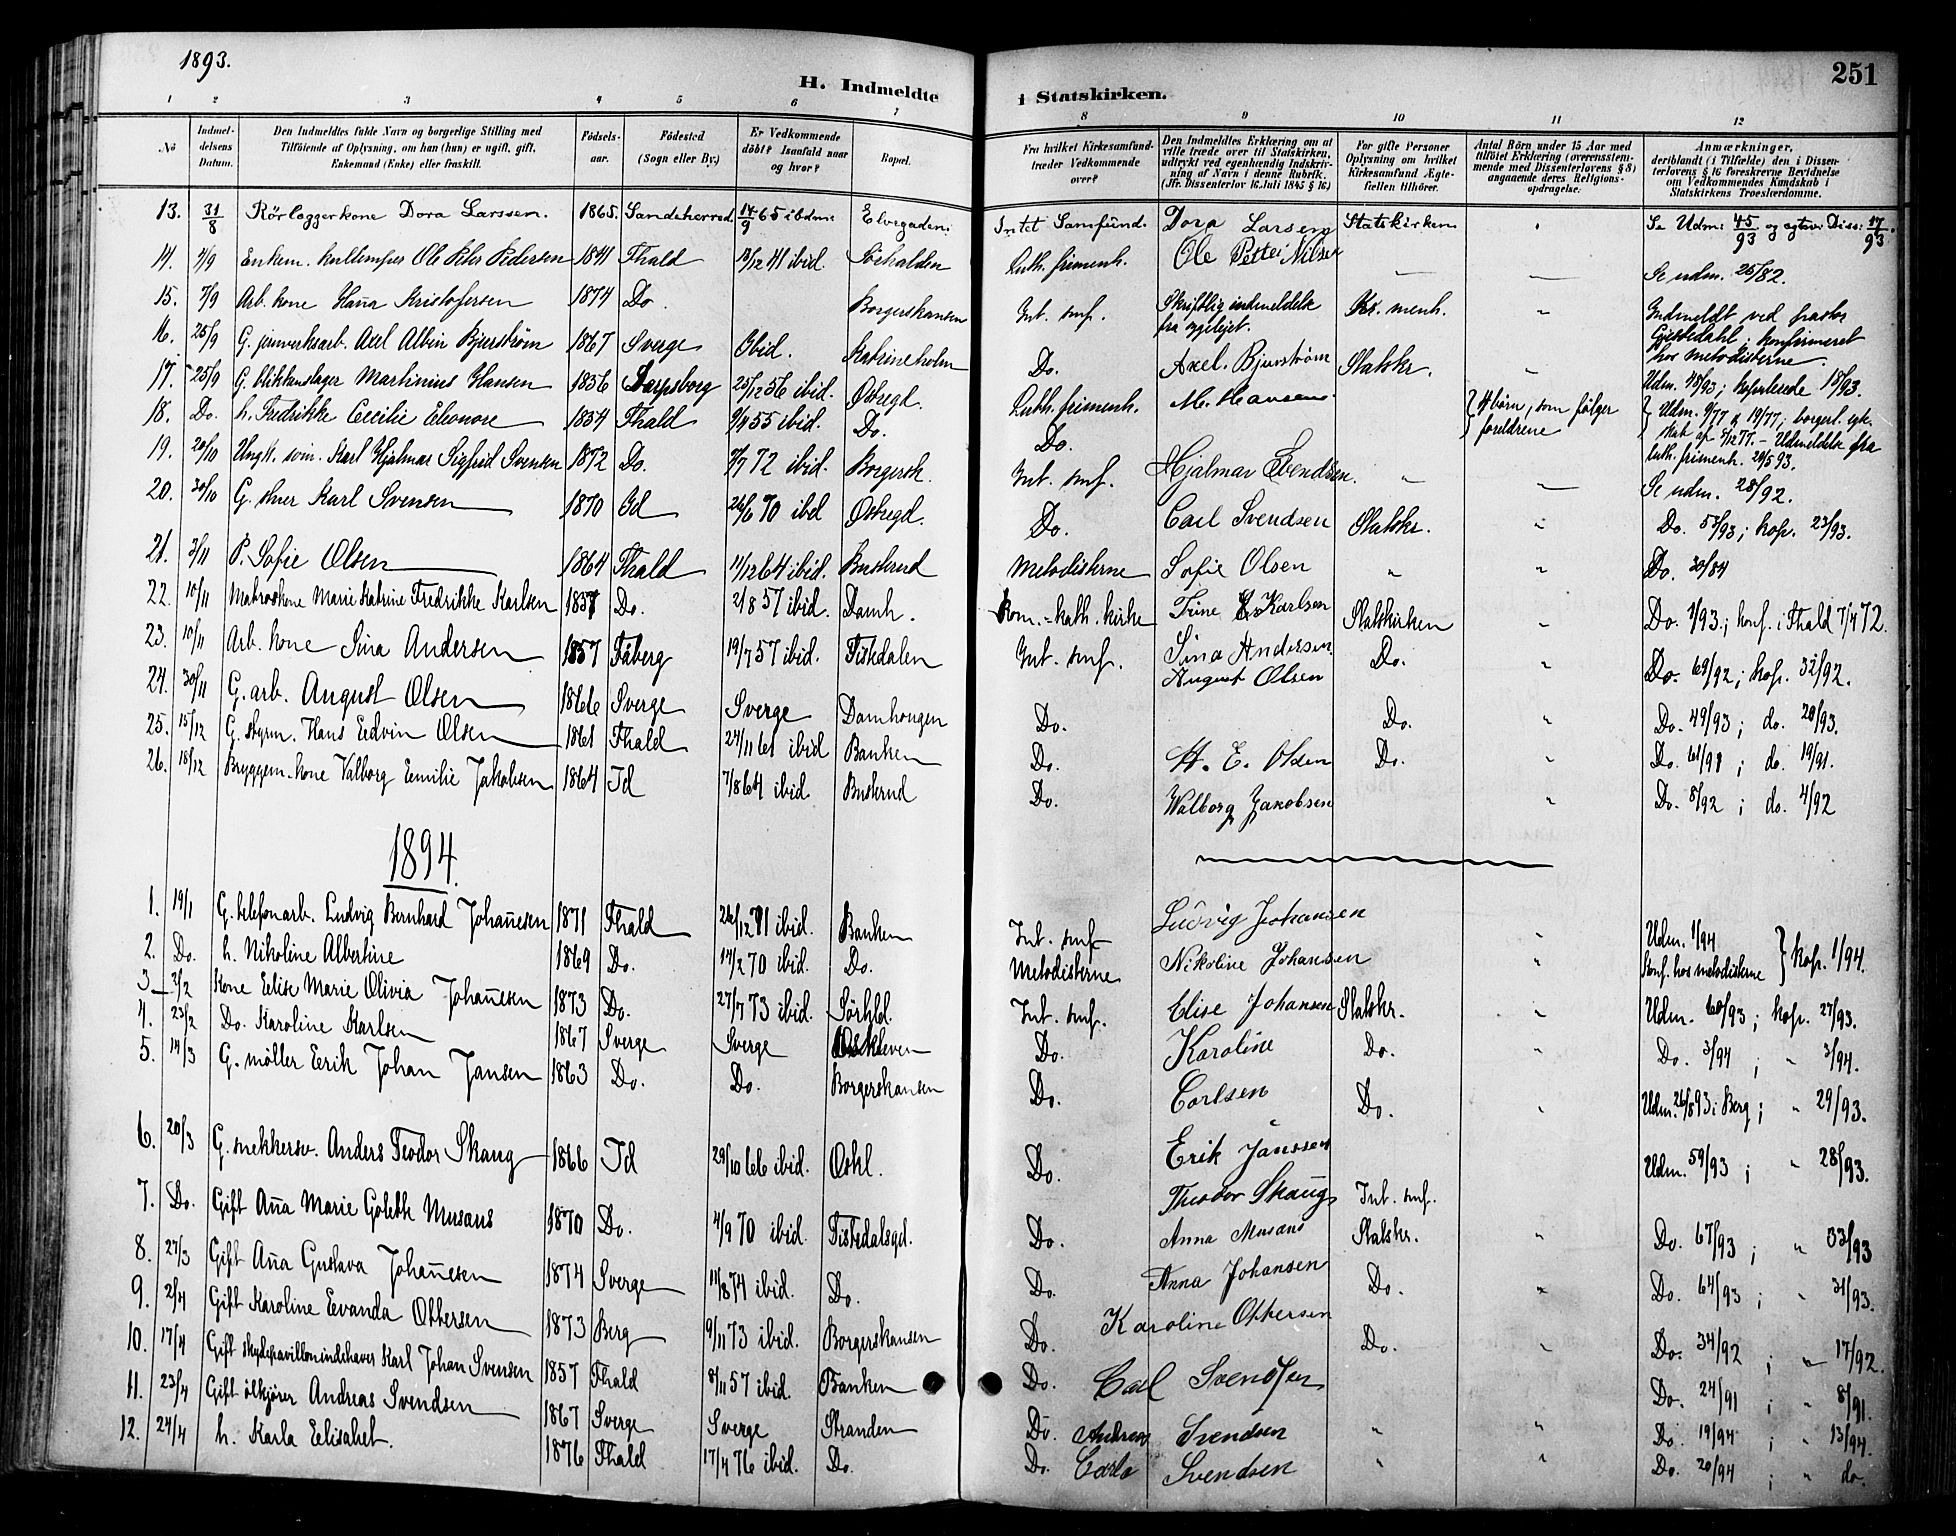 1893.
251
H. Indmeldte i Statskirken.
1 2 3 4 5 6 7 8 9 10 11 12
No
Indmel-
delsens
Datum.
Den Indmeldtes fulde Navn og borgerlige Stilling med
Tilföiende af Oplysning, om han (hun) er ugift, gift,
Enkemand (Enke) eller fraskilt.
Födsels-
aar.
Födested
(Sogn eller By.)
Er Vedkommende
döbt? Isaafald naar
og hvor?
Bopæl.
Fra hvilket Kirkesamfund
træder Vedkommende
over?
Den Indmeldtes Erklæring om at
ville træde over til Statskirken,
udtrykt ved egenhændig Indskriv-
ning af Navn i denne Rubrik.
(Jfr. Dissenterlov 16. Juli 1845 § 16.)
For gifte Personer
Oplysning om hvilket
Kirkesamfund Ægte-
fællen tilhörer.
Antal Börn under 15 Aar med
tilföiet Erklæring (overensstem-
mende med Dissenterlovens § 8)
angaaende deres Religions-
opdragelse.
Anmærkninger,
deriblandt (i Tilfælde) den i Dissen-
terlovens § 16 foreskrevne Bevidnelse
om Vedkommendes Kundskab i
Statskirkens Troeslærdomme.
13. 31/8 Rörlæggerkone Dora Larssen. 1865. Sandeherred 14/9 65 ibdm: Elvegaden: Intet Samfund. Dora Larsen Statskirken " Se Udm: 45/93 og egtev. Diss: 17/93.
14. 4/9 Enkem. Ole Peter Pedersen 1841 Fhald 13/12 41 ibid. Sörhalden Luth. frimenh. Ole Petter Nilsen — — Se udm. 25/82.
15. 7/9 Arb. kone Hana Kristofersen 1874 Do. Borgerskansen Int. smf. Skriftlig indmeldelse
fra sygelejet. Kr. menh. " Indmeldt ved pastor
Gjessedahl; konfirmeret
hos metodisterne.
16. 25/9 G. jernverksarb. Axel Albin Bjurström 1867 Sverge Ibid. Katrineholm Do. Axel Bjurström Statskr. " Udm. 45/93; kopulerede 18/93.
17. 25/9 G. blikkenslager Martinius Hansen 1856 Sarpsborg 25/12 56 ibid. Østregd. Luth. frimenh. M. Hansen } 4 börn, som fölger
foreldrene } Udm. 9/77 & 19/77; borgerl. egt.
skab af 5/12 77. - Udmeldelse fra
luth. frimenh. 29/5 93.
18. Do. h. Fredrikke Cecilie Eleonore 1854 Fhald 9/4 55 ibid. Do. Do.
19. 20/10 Ungk. svin. Karl Hjalmar Sigfrid Svensen 1872 Do. 7/7 72 ibid. Borgersk. Int. smf. Hjalmar Svendsen. " — Se udm. 28/92.
20. 30/10 G. skner Karl Svensen 1870 Id 26/6 70 ibid Østregd. Do. Carl Svendsen Statskr. " Do. 53/93; kop. 23/93.
21. 3/11 P. Sofie Olsen 1864 Fhald 11/12 64 ibid. Buskrud Metodisterne Sofie Olsen " " Do. 30/84
22. 10/11 Matroskone Marie Katrine Fredrikke Karlsen 1857 Do. 2/8 57 ibid. Damh. Rom.-kath. kirke Trine Karlsen Statskirken " Do. 1/93; konf. i Fhald 7/4 72.
23. 10/11 Arb. kone Sina Andersen 1857 Fåberg 19/7 57 ibid. Tistedalen Int. smf. Sina Andersen Do. " Do. 69/92; kop. 32/92.
24. 30/11 G. arb. August Olsen 1866 Sverge Sverge Damhougen Do. August Olsen Do. " Do. 49/93; do. 20/93.
25. 15/12 G. styrm. Hans Edvin Olsen 1861 Fhald 24/11 61 ibid Banken Do. H. E. Olsen Do. " Do. 61/91; do. 19/91.
26. 18/12 Bryggem. kone Valborg Emilie Jakobsen 1864 Id 7/8 64 ibid. Buskrud Do. Walborg Jakobsen " Do. 8/92; do. 4/92
1894.
1. 19/1 G. telefonarb. Ludvig Bernhard Johanesen 1871 Fhald 26/12 71 ibid. Banken Int. smf. Ludvig Johansen " Udm. 1/94 } kop. 1/94.
2. Do. h. Nikoline Albertine 1869 Do. 14/2 70 ibid. Do. Metodisterne Nikoline Johansen " Konf. hos metodisterne
3 2/2 Kone Elise Marie Olivia Johanesen 1873 Do. 27/7 73 ibid. Sörhld. Int. smf. Elise Johansen Statskr. " Udm. 60/93; kop. 27/93.
4. 23/2 Do. Karoline Karlsen 1867 Sverge Sverge Do. Karoline
Carlsen Do. " Do. 3/94; " 3/94.
5. 14/3 G. möller Erik Johan Jansen 1863 Do. Do. Borgerskansen Do. Erik Janssen Do. " Udm. 26/8 93 i Berg; " 29/93.
6. 20/3 G. snekkersv. Anders Teodor Skaug 1866 Id 29/10 66 ibid. Oskl. Do. Theodor Skaug Int. smf. Udm. 59/93; " 28/93.
7. Do. Gift Ana Marie Golette Musaus 1870 Do. 4/9 70 ibid. Tistedalsgd. Do. Anna Musaus Statskr. " Do. 67/93; " 33/93
8. 27/3 Gift Ana Gustava Johanesen 1874 Sverge 11/8 74 ibid. Do. Do. Anna Johansen Do. " Do. 64/93; " 31/93.
9. 2/4 Gift Karoline Evanda Ottersen 1873 Berg 9/11 73 ibid. Borgerskansen Do. Karoline Ottersen Do. " Do. 34/92; " 17/92.
10. 17/4 Gift skydepavillonindehaver Karl Johan Svensen 1857 Fhald 8/11 57 ibid. Banken Do. Carl Svendsen Do. 24/91; " 8/91.
11. 23/4 Gift ölkjörer Andreas Svendsen 1867 Sverge Sverge Stranden Do. Andreas Svendsen " " Do. 19/94; " 13/94.
12. 24/4 h. Karla Elisabet. 1876 Fhald 17/4 76 ibid. Do. Do. Carla Svendsen " " Do. 20/94; " do.